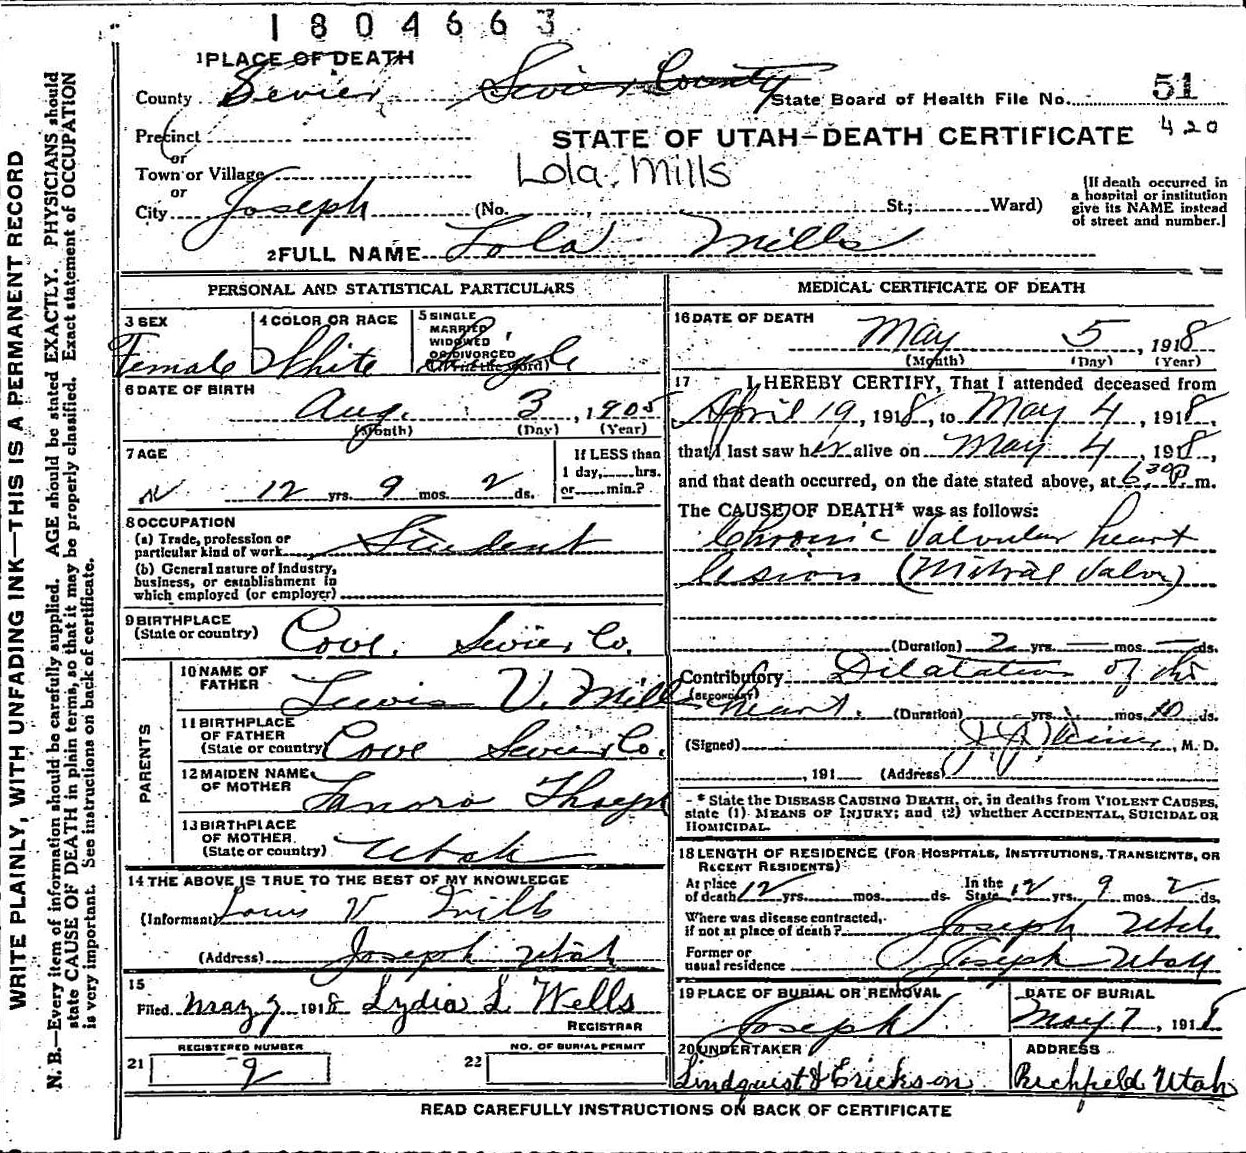 1804663
1 PLACE OF DEATH
County Sevier Sevier County State Board of Health File No. 51
Precinct 420
or
STATE OF UTAH—DEATH CERTIFICATE
Town or Village Lola Mills
or
City Joseph (No. St.; Ward)
(If death occurred in a hospital or institution give its NAME instead of street and number.)
2 FULL NAME Lola Mills
PERSONAL AND STATISTICAL PARTICULARS
3 SEX Female
4 COLOR OR RACE White
5 SINGLE MARRIED WIDOWED OR DIVORCED (Write the word) Single
6 DATE OF BIRTH
Aug. 3, 1905
(Month) (Day) (Year)
7 AGE
12 yrs. 9 mos. 2 ds.
If LESS than 1 day, hrs. or min.?
8 OCCUPATION
(a) Trade, profession or
particular kind of work Student
(b) General nature of industry,
business, or establishment in
which employed (or employer)
9 BIRTHPLACE
(State or country) Cove. Sevier Co.
PARENTS
10 NAME OF
FATHER Lewis V. Mills
11 BIRTHPLACE
OF FATHER
(State or country) Cove Sevier Co.
12 MAIDEN NAME
OF MOTHER
13 BIRTHPLACE
OF MOTHER
(State or country) Utah
14 THE ABOVE IS TRUE TO THE BEST OF MY KNOWLEDGE
(Informant) Louis V Mills
(Address) Joseph Utah
15
Filed May 7 1918 Lydia L. Wells
REGISTRAR
REGISTERED NUMBER
21 9
NO. OF BURIAL PERMIT
22
MEDICAL CERTIFICATE OF DEATH
16 DATE OF DEATH
May 5, 1918
(Month) (Day) (Year)
17 I HEREBY CERTIFY, That I attended deceased from
April 19, 1918, to May 4, 1918,
that I last saw her alive on May 4, 1918,
and that death occurred, on the date stated above, at 6.30 P. m.
The CAUSE OF DEATH* was as follows:
Chronic Valvular heart
lesion (Mitral Valve)
(Duration) 2 yrs. — mos. — ds.
Contributory Dilatation of the
(SECONDARY) heart. (Duration) yrs. mos. 10 ds.
(Signed) M. D.
, 191 (Address)
* State the DISEASE CAUSING DEATH, or, in deaths from VIOLENT CAUSES,
state (1) MEANS OF INJURY; and (2) whether ACCIDENTAL, SUICIDAL OR
HOMICIDAL.
18 LENGTH OF RESIDENCE (FOR HOSPITALS, INSTITUTIONS, TRANSIENTS, OR
RECENT RESIDENTS)
At place of death 12 yrs. mos. ds. In the State 12 yrs. 9 mos. 2 ds.
Where was disease contracted,
if not at place of death? Joseph Utah
Former or
usual residence Joseph Utah
19 PLACE OF BURIAL OR REMOVAL
Joseph
DATE OF BURIAL
May 7, 1918
20 UNDERTAKER
Lindquist & Erickson
ADDRESS
Richfield Utah
READ CAREFULLY INSTRUCTIONS ON BACK OF CERTIFICATE
WRITE PLAINLY, WITH UNFADING INK—THIS IS A PERMANENT RECORD
N. B.—Every item of information should be carefully supplied. AGE should be stated EXACTLY. PHYSICIANS should
state CAUSE OF DEATH in plain terms, so that it may be properly classified. Exact statement of OCCUPATION
is very important. See instructions on back of certificate.